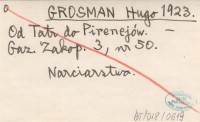 GROSMAN Hugo 1923.
Od Tatr do Pirenejów. —
Gaz. Zakop. 3, nr 50.
Narciarstwo.